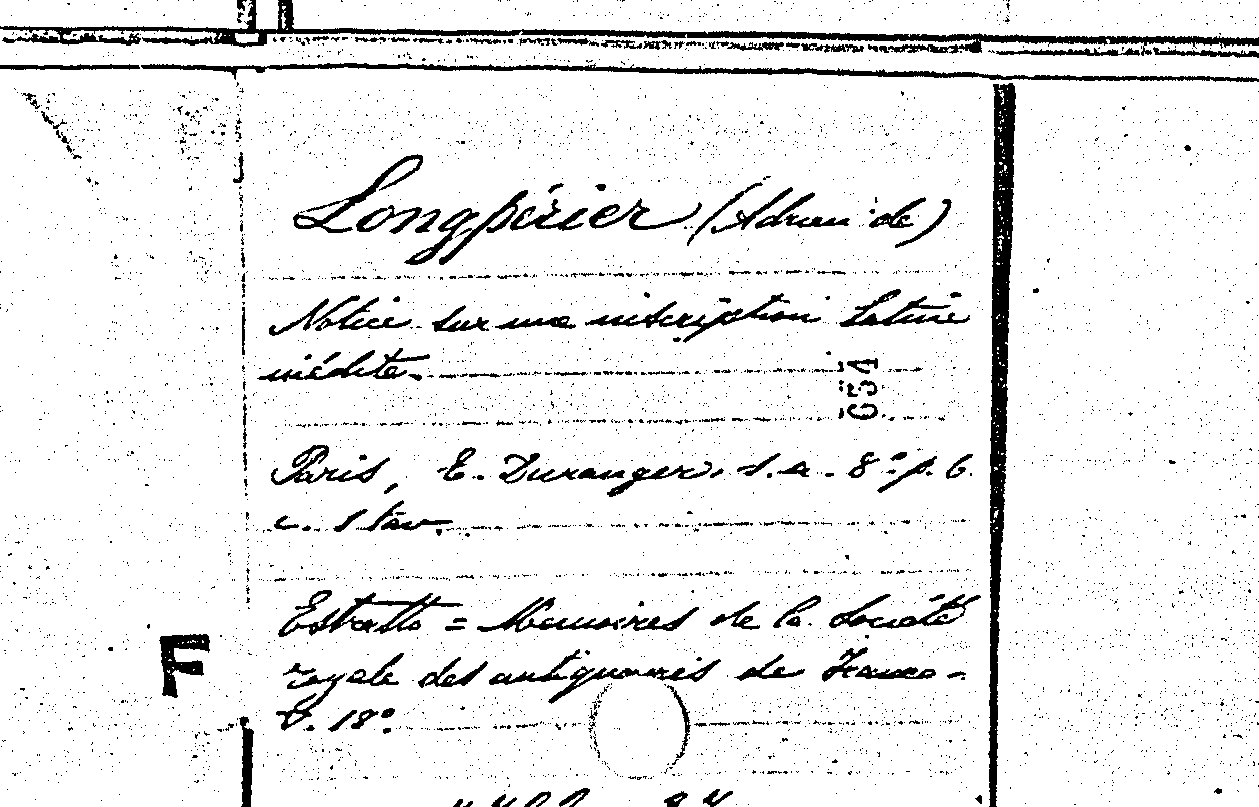 Longpérier (Adrien de)
Notice sur une inscription Latine
inédite.
654
Paris, E. Duranger, s. a. 8° p. 6.
c. 1 tav.
Estratto = Memoires de la Societé
royale des antiquaires de France -
V. 18°
F